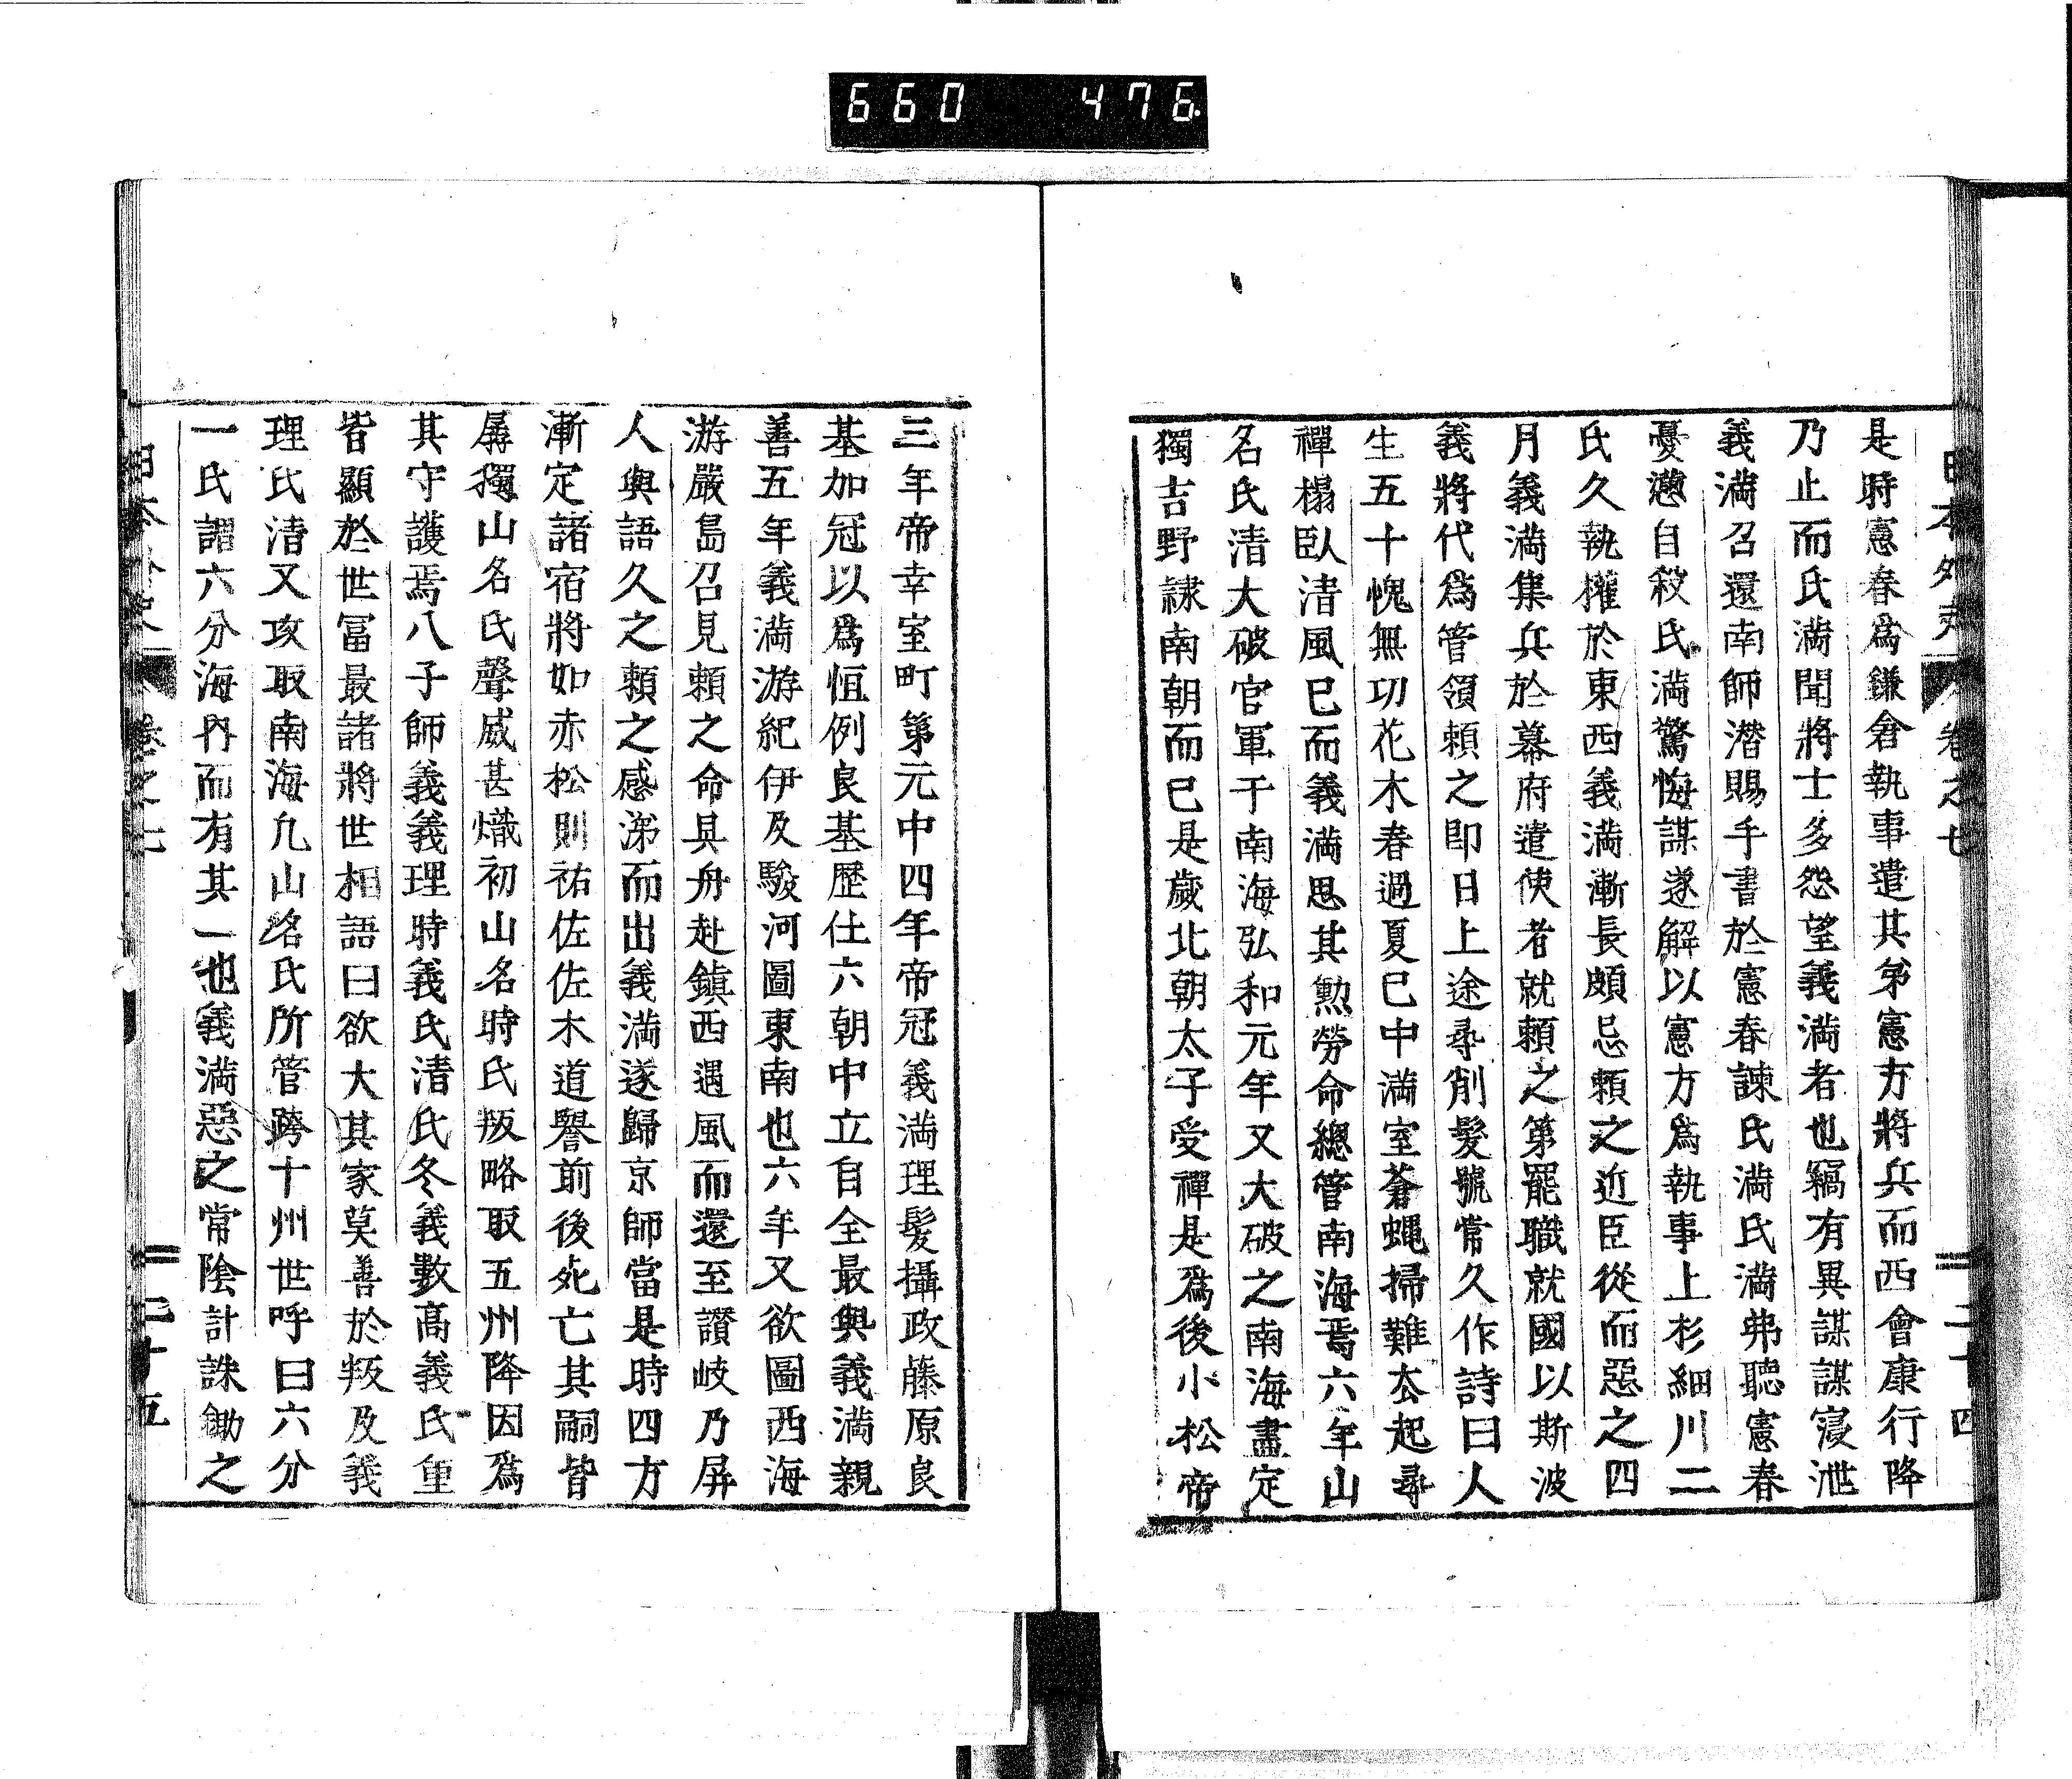 660 476
日本外史 卷之七 二十四
是時憲春爲鎌倉執事遣其弟憲方將兵而西會康行降
乃止而氏満聞將士多怨望義満者也竊有異謀謀寖泄
義満召還南師潜賜手書於憲春諫氏満氏満弗聽憲春
憂懣自殺氏満驚悔謀遂解以憲方爲執事上杉細川二
氏久執權於東西義満漸長頗忌頼之近臣從而惡之四
月義満集兵於幕府遣使者就頼之第罷職就國以斯波
義將代爲管領頼之即日上途尋削髮號常久作詩曰人
生五十愧無功花木春過夏已中満室蒼蠅掃難去起尋
禪榻臥清風已而義満思其勲勞命總管南海焉六年山
名氏清大破官軍于南海弘和元年又大破之南海盡定
獨吉野隷南朝而已是歲北朝太子受禪是爲後小松帝
三年帝幸室町第元中四年帝冠義満理髮攝政藤原良
基加冠以爲恒例良基歷仕六朝中立自全最與義満親
善五年義満游紀伊及駿河圖東南也六年又欲圖西海
游嚴島召見頼之命具舟赴鎮西遇風而還至讃岐乃屏
人與語久之頼之感涕而出義満遂歸京師當是時四方
漸定諸宿將如赤松則祐佐佐木道譽前後死亡其嗣皆
孱獨山名氏聲威甚熾初山名時氏叛略取五州降因爲
其守護焉八子師義義理時義氏清氏冬義數高義氏重
皆顯於世冨最諸將世相語曰欲大其家莫善於叛及義
理氏清又攻取南海凡山名氏所管跨十州世呼曰六分
一氏謂六分海內而有其一也義満惡之常陰計誅鋤之
日本外史 卷之七 二十五